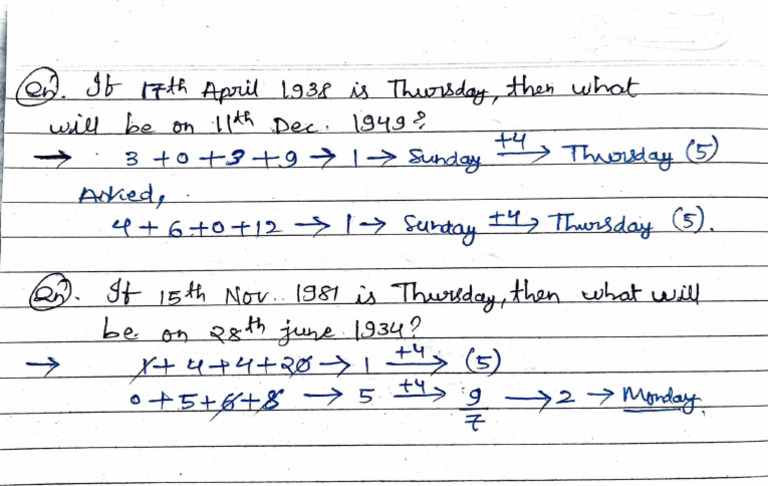 Qn. If 17th April 1938 is Thursday, then what
will be on 11th Dec. 1949?
→ 3 + 0 + 3 + 9 → 1 → Sunday +4→ Thursday (5)
Asked,
4 + 6 + 0 + 12 → 1 → Sunday +4→ Thursday (5).
Qn. If 15th Nov. 1981 is Thursday, then what will
be on 28th june 1934?
→ 1 + 4 + 4 + 20 → 1 +4→ (5)
0 + 5 + 6 + 8 → 5 +4→ 9/7 → 2 → Monday.